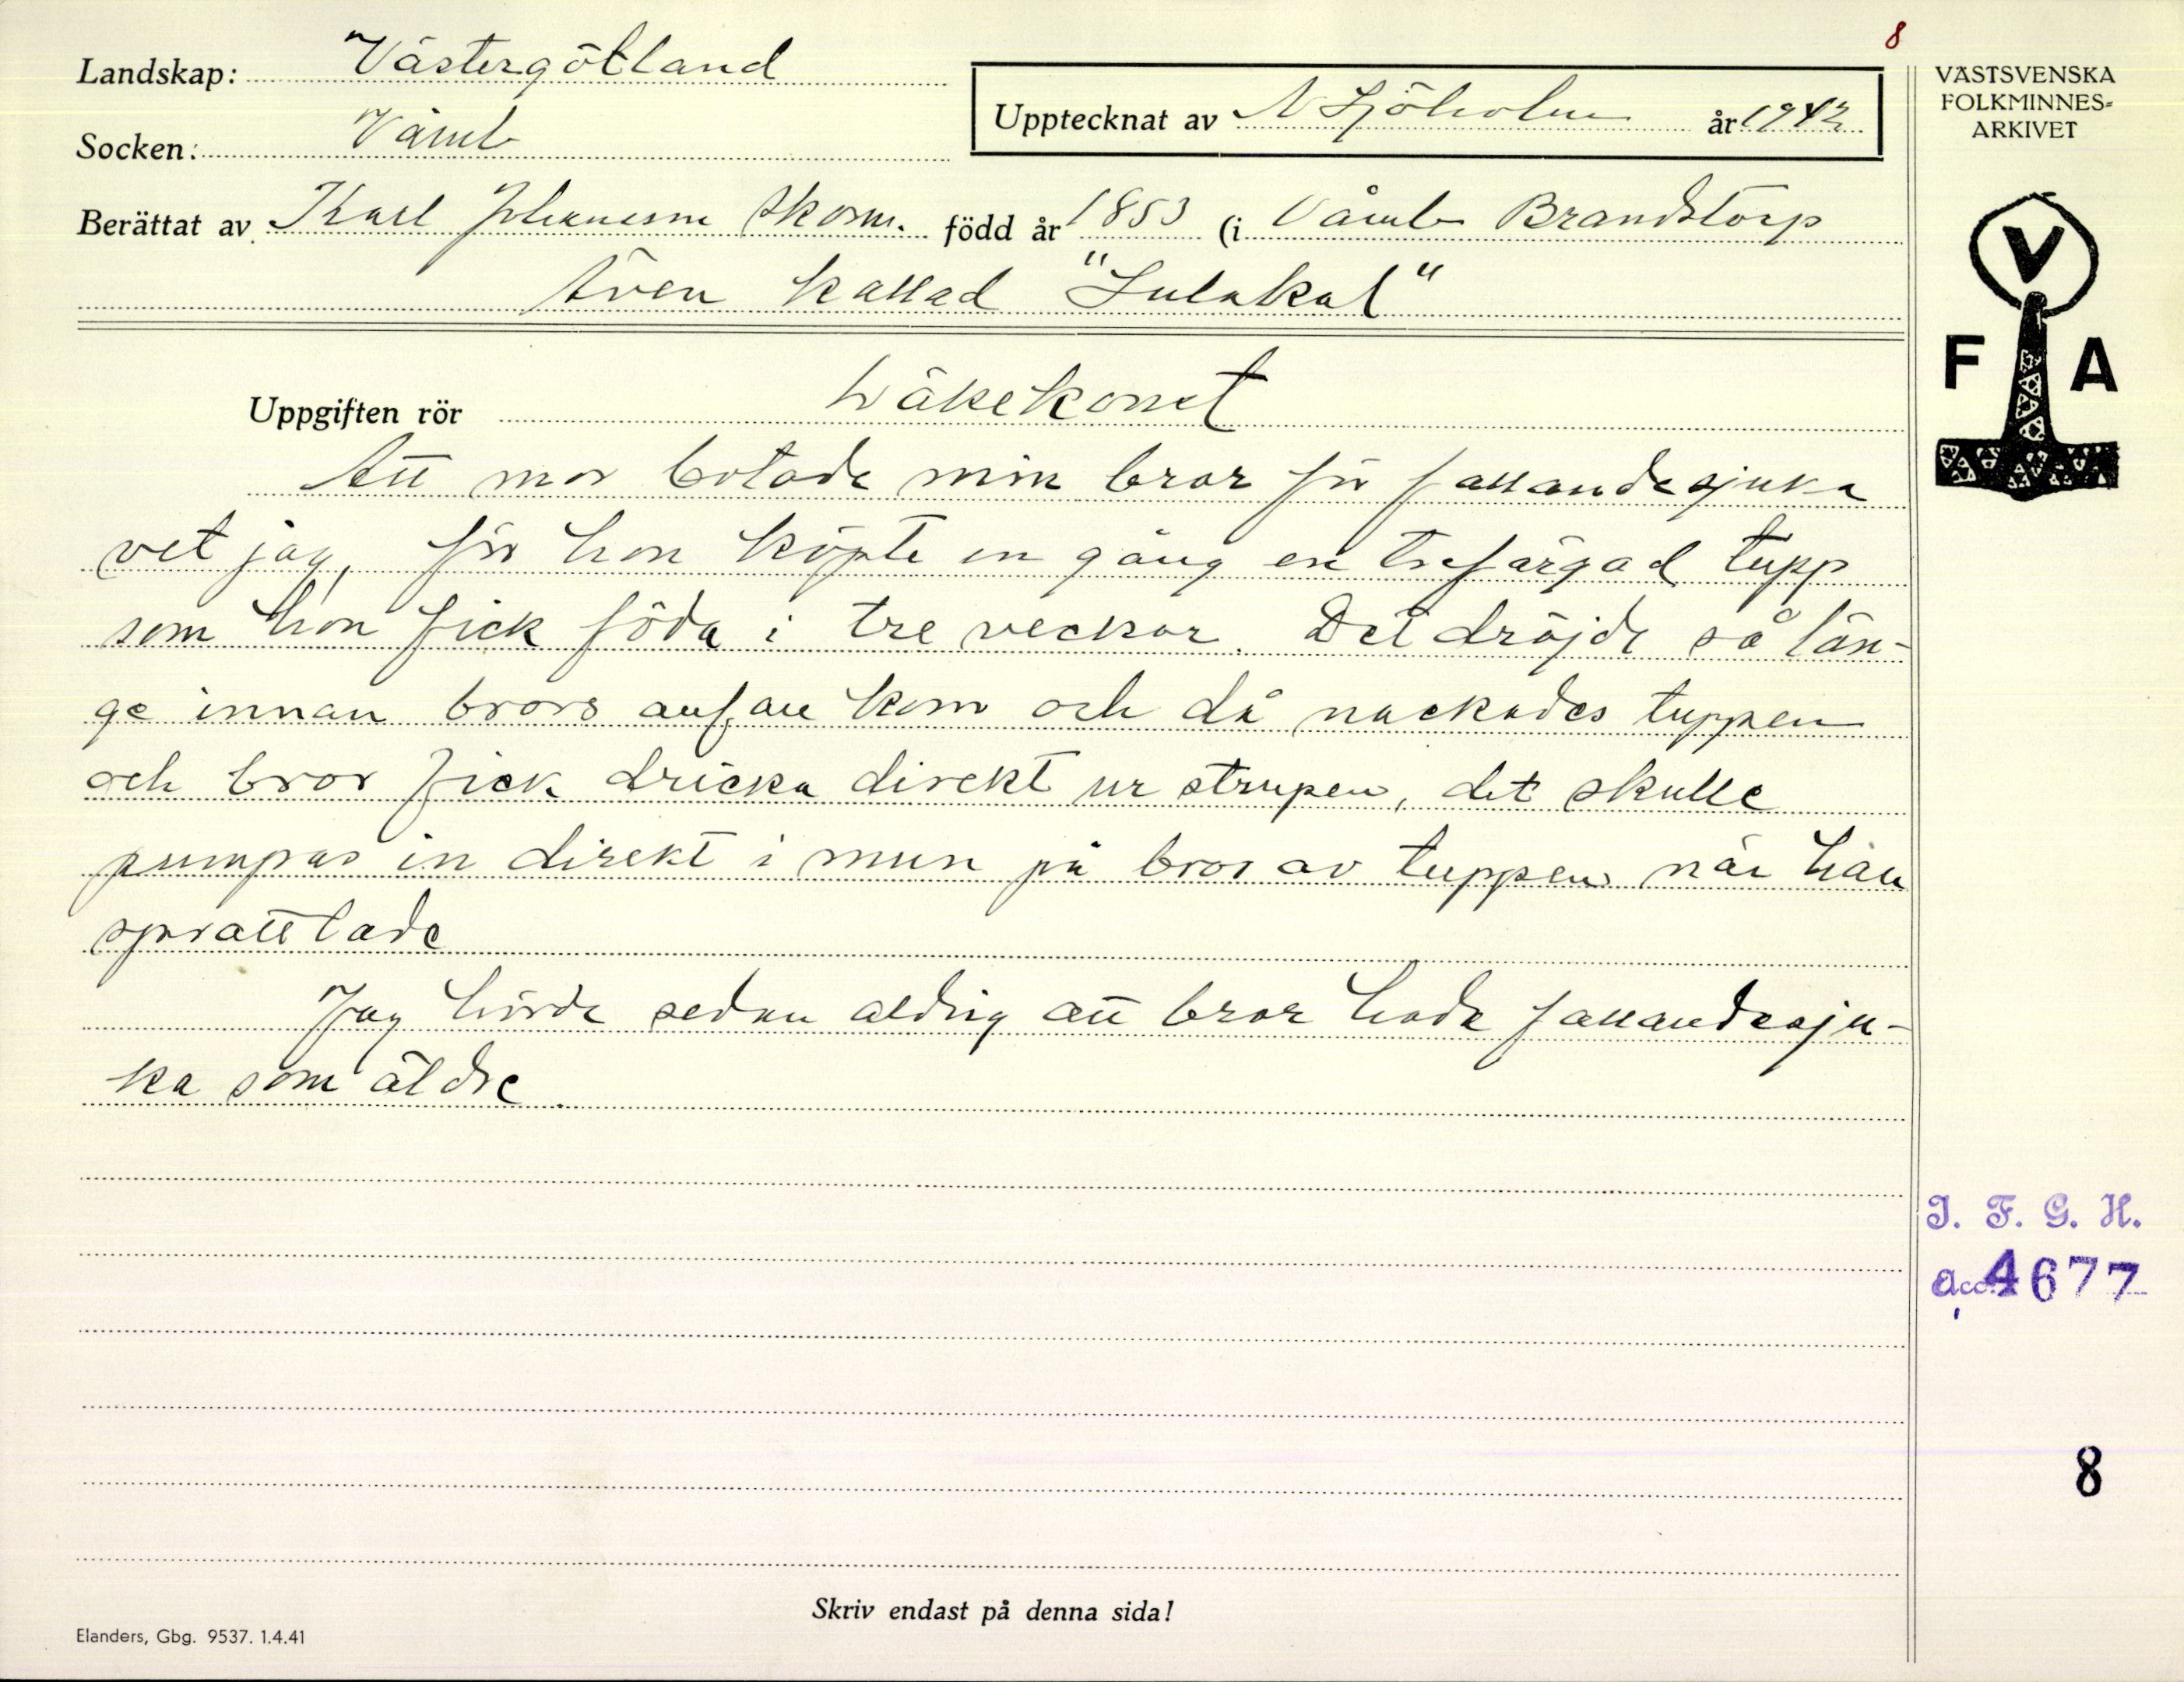 8
Landskap: Västergötland
Socken: Våmb
Upptecknat av N Sjöholm år 1942
VÄSTSVENSKA
FOLKMINNES-
ARKIVET
Berättat av Karl Johansson Skom. född år 1853 (i Våmb Brandstorp
Även kallad "Lulakal"
V
F A
Uppgiften rör Läkekonst
Att mor botade min bror för fallandesjuka
vet jag, för hon köpte en gång en trefärgad tupp
som hon fick föda i tre veckor. Det dröjde så län-
ge innan brors anfall kom och då nackades tuppen
och bror fick dricka direkt ur strupen, det skulle
pumpas in direkt i mun på bror av tuppen när han
sprattlade
Jag hörde sedan aldrig att bror hade fallandesju-
ka som äldre.
I. F. G. H.
Acc. 4677
8
Skriv endast på denna sida!
Elanders, Gbg. 9537. 1.4.41